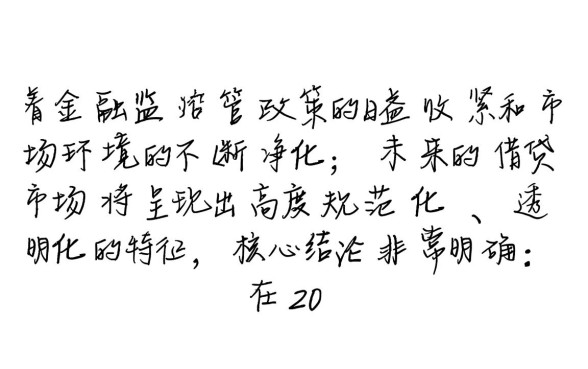 着金融监控管政策的日益收紧和市
场环境的不断净化；未来的借贷
市场将呈现出高度规范化、透
明化的特征，核心结论非常明确：
在20